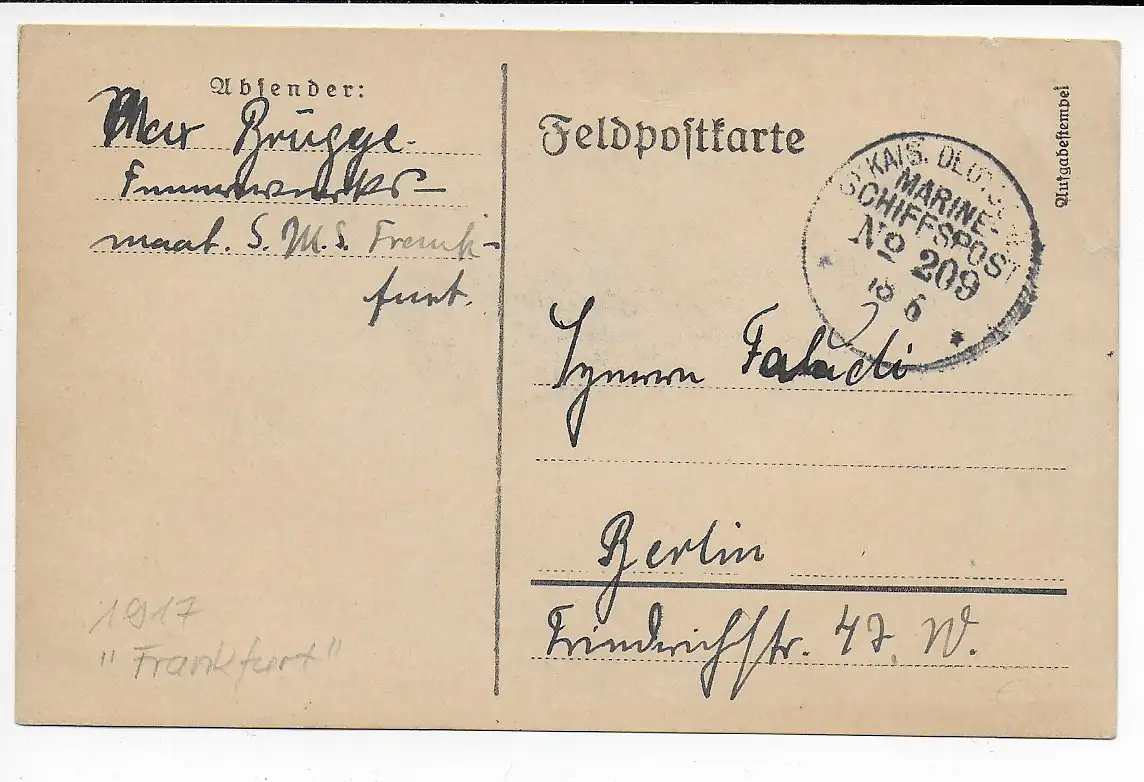 Absender:
Max Brügge.
Feuerwerks-
maat. S. M. S. Frank-
furt.
Feldpostkarte
Aufgabestempel
KAIS. DEUTSCHE
MARINE-
SCHIFFSPOST
No 209
18 6
*
Herrn Faludi
Berlin
Friedrichstr. 47. W.
1917
"Frankfurt"